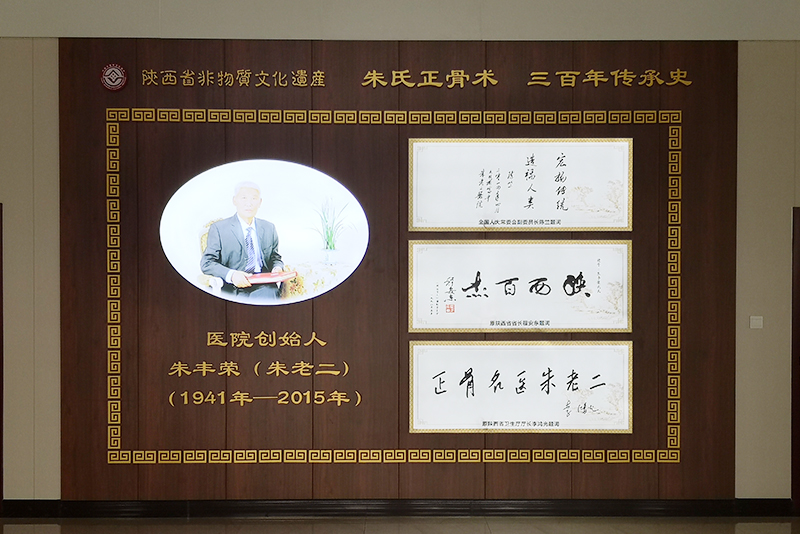 陕西省非物質文化遺産 朱氏正骨术 三百年传承史
宏扬传统
造福人类
全国人大常委会副委员长陈竺题词
陕西百杰
原陕西省省长程安东题词
正骨名医朱老二
原陕西省卫生厅厅长李鸿光题词
医院创始人
朱丰荣（朱老二）
（1941年—2015年）